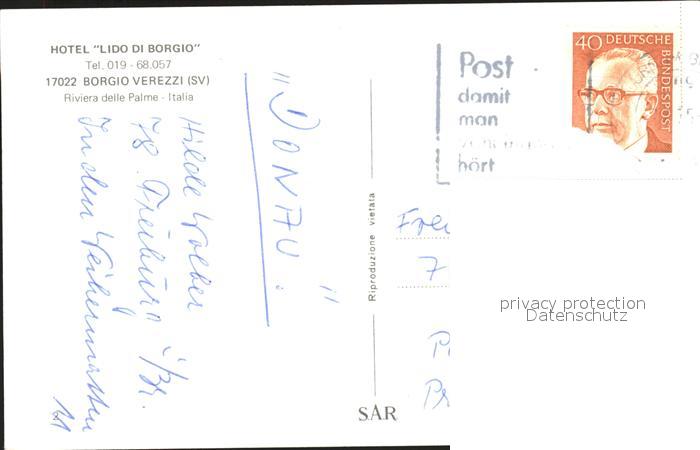 HOTEL "LIDO DI BORGIO"
Tel. 019 - 68.057
17022 BORGIO VEREZZI (SV)
Riviera delle Palme - Italia
"DONAU"!
Hilde
78 Freiburg i/Br.
In den Weihermatten
Riproduzione vietata
SAR
Post
damit
man
hört
40 DEUTSCHE
BUNDESPOST
7
privacy protection
Datenschutz